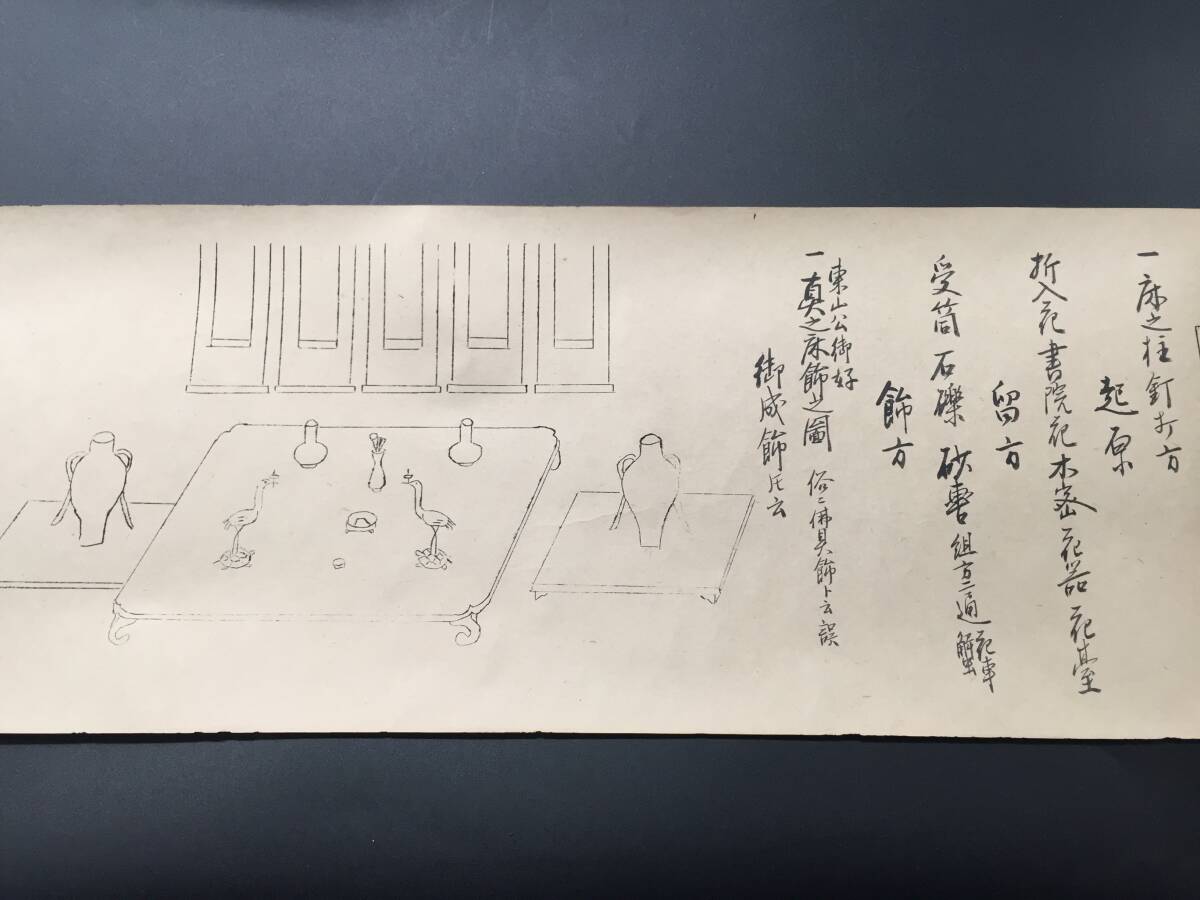 一 床之柱釘打方
起原
折入花 書院花 木密 花器 花臺
留方
受筒 石礫 砂 組方三通 花車 蟹
飾方
東山公御好
一 真之床飾之圖 俗ニ佛具飾ト云誤
御成飾氏云